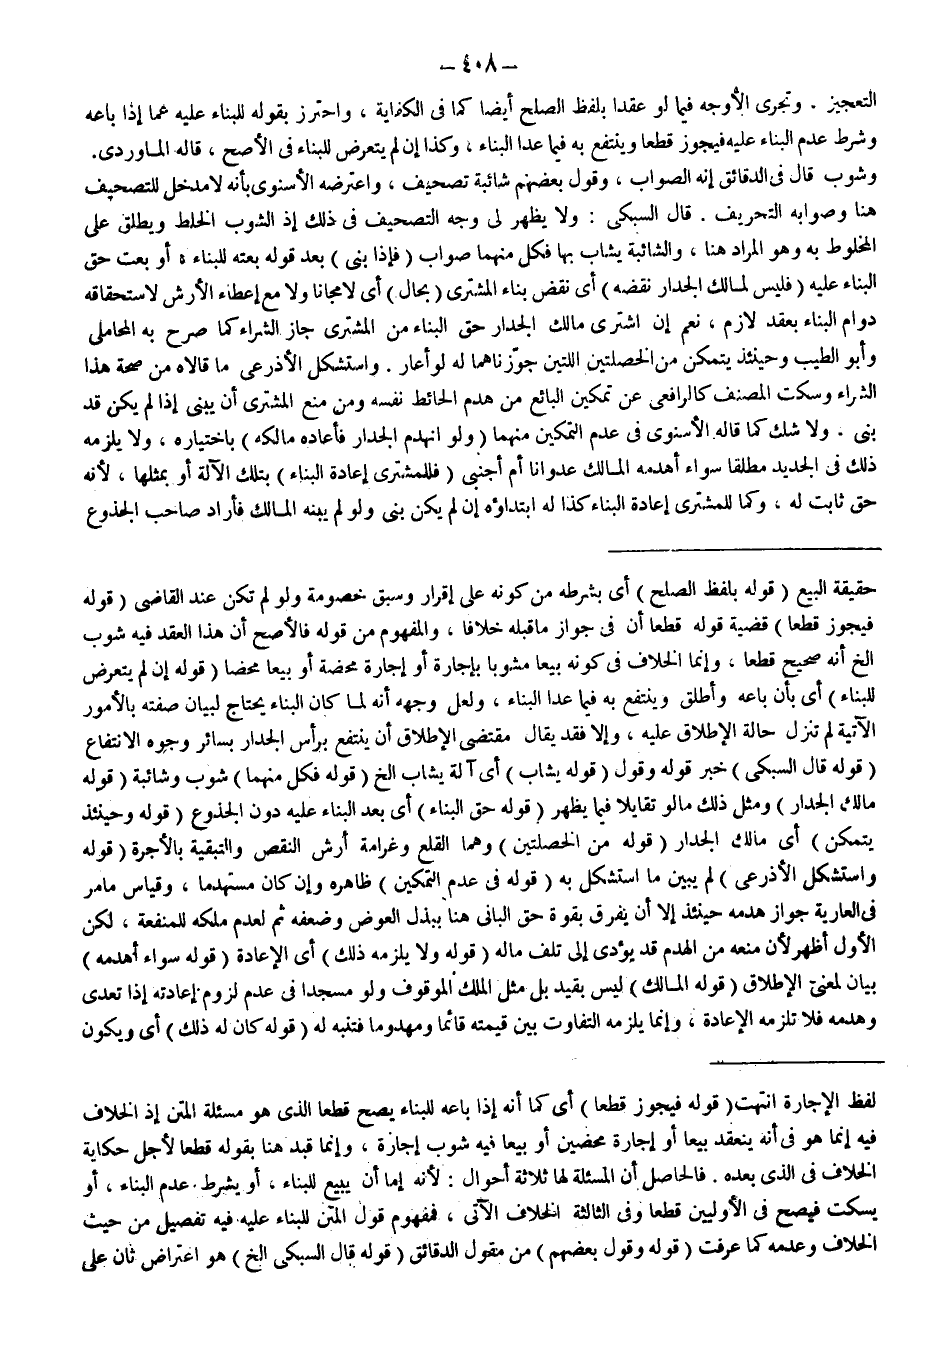 – ٤٠٨ –
التعجيز . وتجرى الأوجه فيما لو عقدا بلفظ الصلح أيضا كما فى الكفاية ، واحترز بقوله للبناء عليه عما إذا باعه
وشرط عدم البناء عليه فيجوز قطعا وينتفع به فيما عدا البناء ، وكذا إن لم يتعرض للبناء فى الأصح ، قاله الماوردى.
وشوب قال فى الدقائق إنه الصواب ، وقول بعضهم شائبة تصحيف ، واعترضه الأسنوى بأنه لامدخل للتصحيف
هنا وصوابه التحريف . قال السبكى : ولا يظهر لى وجه التصحيف فى ذلك إذ الشوب الخلط ويطلق على
المخلوط به وهو المراد هنا ، والشائبة يشاب بها فكل منهما صواب ( فإذا بنى ) بعد قوله بعته للبناء أو بعت حق
البناء عليه ( فليس لمالك الجدار نقضه ) أى نقض بناء المشترى ( بحال ) أى لامجانا ولا مع إعطاء الأرش لاستحقاقه
دوام البناء بعقد لازم ، نعم إن اشترى مالك الجدار حق البناء من المشترى جاز الشراء كما صرح به المحاملى
وأبو الطيب وحينئذ يتمكن من الخصلتين اللتين جوّزناهما له لو أعار . واستشكل الأذرعى ما قالاه من صحة هذا
الشراء وسكت المصنف كالرافعى عن تمكين البائع من هدم الحائط نفسه ومن منع المشترى أن يبنى إذا لم يكن قد
بنى . ولا شك كما قاله الأسنوى فى عدم التمكين منهما ( ولو انهدم الجدار فأعاده مالكه ) باختياره ، ولا يلزمه
ذلك فى الجديد مطلقا سواء أهدمه المالك عدوانا أم أجنبى ( فللمشترى إعادة البناء ) بتلك الآلة أو بمثلها ، لأنه
حق ثابت له ، وكما للمشترى إعادة البناء كذا له ابتداؤه إن لم يكن بنى ولو لم يبنه المالك فأراد صاحب الجذوع
حقيقة البيع ( قوله بلفظ الصلح ) أى بشرطه من كونه على إقرار وسبق خصومة ولو لم تكن عند القاضى ( قوله
فيجوز قطعا ) قضية قوله قطعا أن فى جواز ماقبله خلافا ، والمفهوم من قوله فالأصح أن هذا العقد فيه شوب
الخ أنه صحيح قطعا ، وإنما الخلاف فى كونه بيعا مشوبا بإجارة أو إجارة محضة أو بيعا محضا ( قوله إن لم يتعرض
للبناء ) أى بأن باعه وأطلق وينتفع به فيما عدا البناء ، ولعل وجهه أنه لما كان البناء يحتاج لبيان صفته بالأمور
الآتية لم تنزل حالة الإطلاق عليه ، وإلا فقد يقال مقتضى الإطلاق أن ينتفع برأس الجدار بسائر وجوه الانتفاع
( قوله قال السبكى ) خبر قوله وقول ( قوله يشاب ) أى آلة يشاب الخ ( قوله فكل منهما ) شوب وشائبة ( قوله
مالك الجدار ) ومثل ذلك مالو تقايلا فيما يظهر ( قوله حق البناء ) أى بعد البناء عليه دون الجذوع ( قوله وحينئذ
يتمكن ) أى مالك الجدار ( قوله من الخصلتين ) وهما القلع وغرامة أرش النقص والتبقية بالأجرة ( قوله
واستشكل الأذرعى ) لم يبين ما استشكل به ( قوله فى عدم التمكين ) ظاهره وإن كان مستهدما ، وقياس مامر
فى العارية جواز هدمه حينئذ إلا أن يفرق بقوة حق البانى هنا ببذل العوض وضعفه ثم لعدم ملكه للمنفعة ، لكن
الأول أظهر لأن منعه من الهدم قد يؤدى إلى تلف ماله ( قوله ولا يلزمه ذلك ) أى الإعادة ( قوله سواء أهدمه )
بيان لمعنى الإطلاق ( قوله المالك ) ليس بقيد بل مثل الملك الموقوف ولو مسجدا فى عدم لزوم إعادته إذا تعدى
وهدمه فلا تلزمه الإعادة ، وإنما يلزمه التفاوت بين قيمته قائما ومهدوما فتنبه له ( قوله كان له ذلك ) أى ويكون
لفظ الإجارة انتهت ( قوله فيجوز قطعا ) أى كما أنه إذا باعه للبناء يصح قطعا الذى هو مسئلة المتن إذ الخلاف
فيه إنما هو فى أنه ينعقد بيعا أو إجارة محضين أو بيعا فيه شوب إجارة ، وإنما قيد هنا بقوله قطعا لأجل حكاية
الخلاف فى الذى بعده . فالحاصل أن المسئلة لها ثلاثة أحوال : لأنه إما أن يبيع للبناء ، أو يشرط عدم البناء ، أو
يسكت فيصح فى الأوليين قطعا وفى الثالثة الخلاف الآتى ، فمفهوم قول المتن للبناء عليه فيه تفصيل من حيث
الخلاف وعدمه كما عرفت ( قوله وقول بعضهم ) من مقول الدقائق ( قوله قال السبكى الخ ) هو اعتراض ثان على